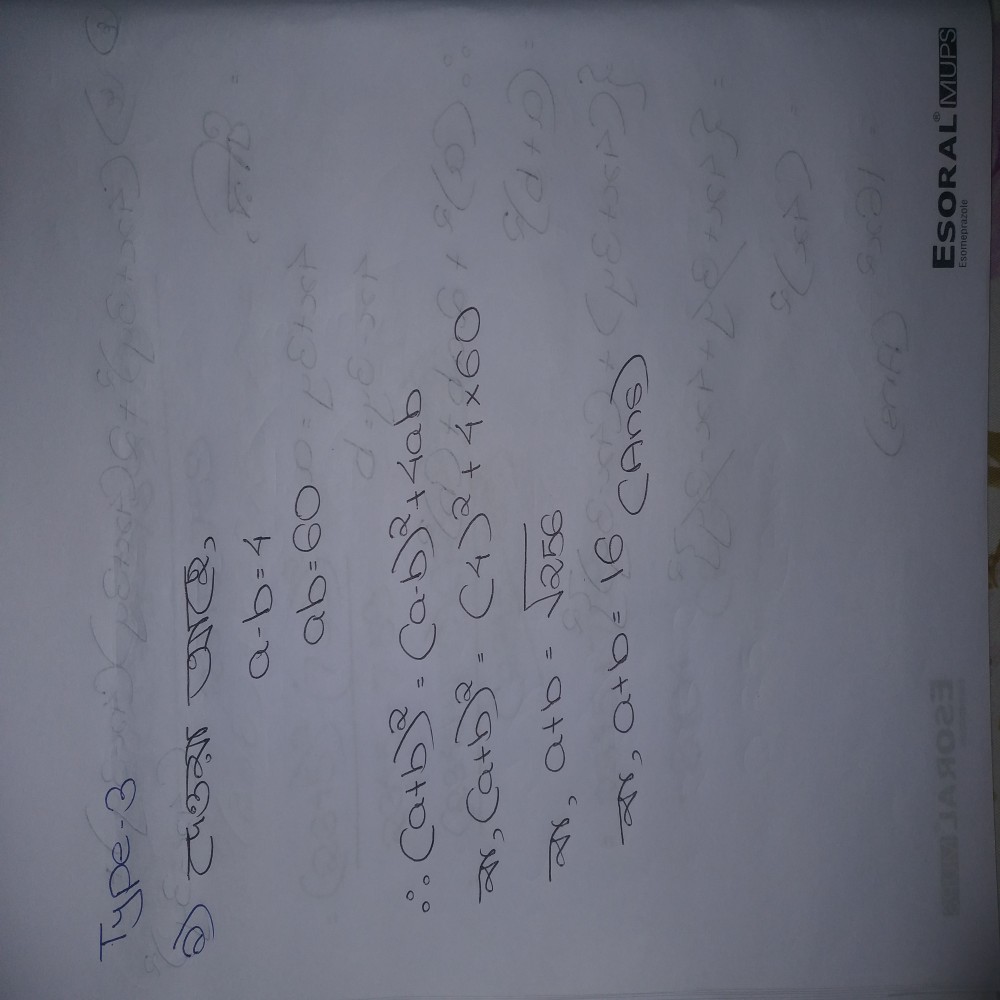 Type-3
১) দেওয়া আছে,
a-b=4
ab=60
∴ (a+b)² = (a-b)²+4ab
বা, (a+b)² = (4)²+4×60
বা, a+b = √256
বা, a+b = 16 (Ans)
ESORAL® MUPS
Esomeprazole